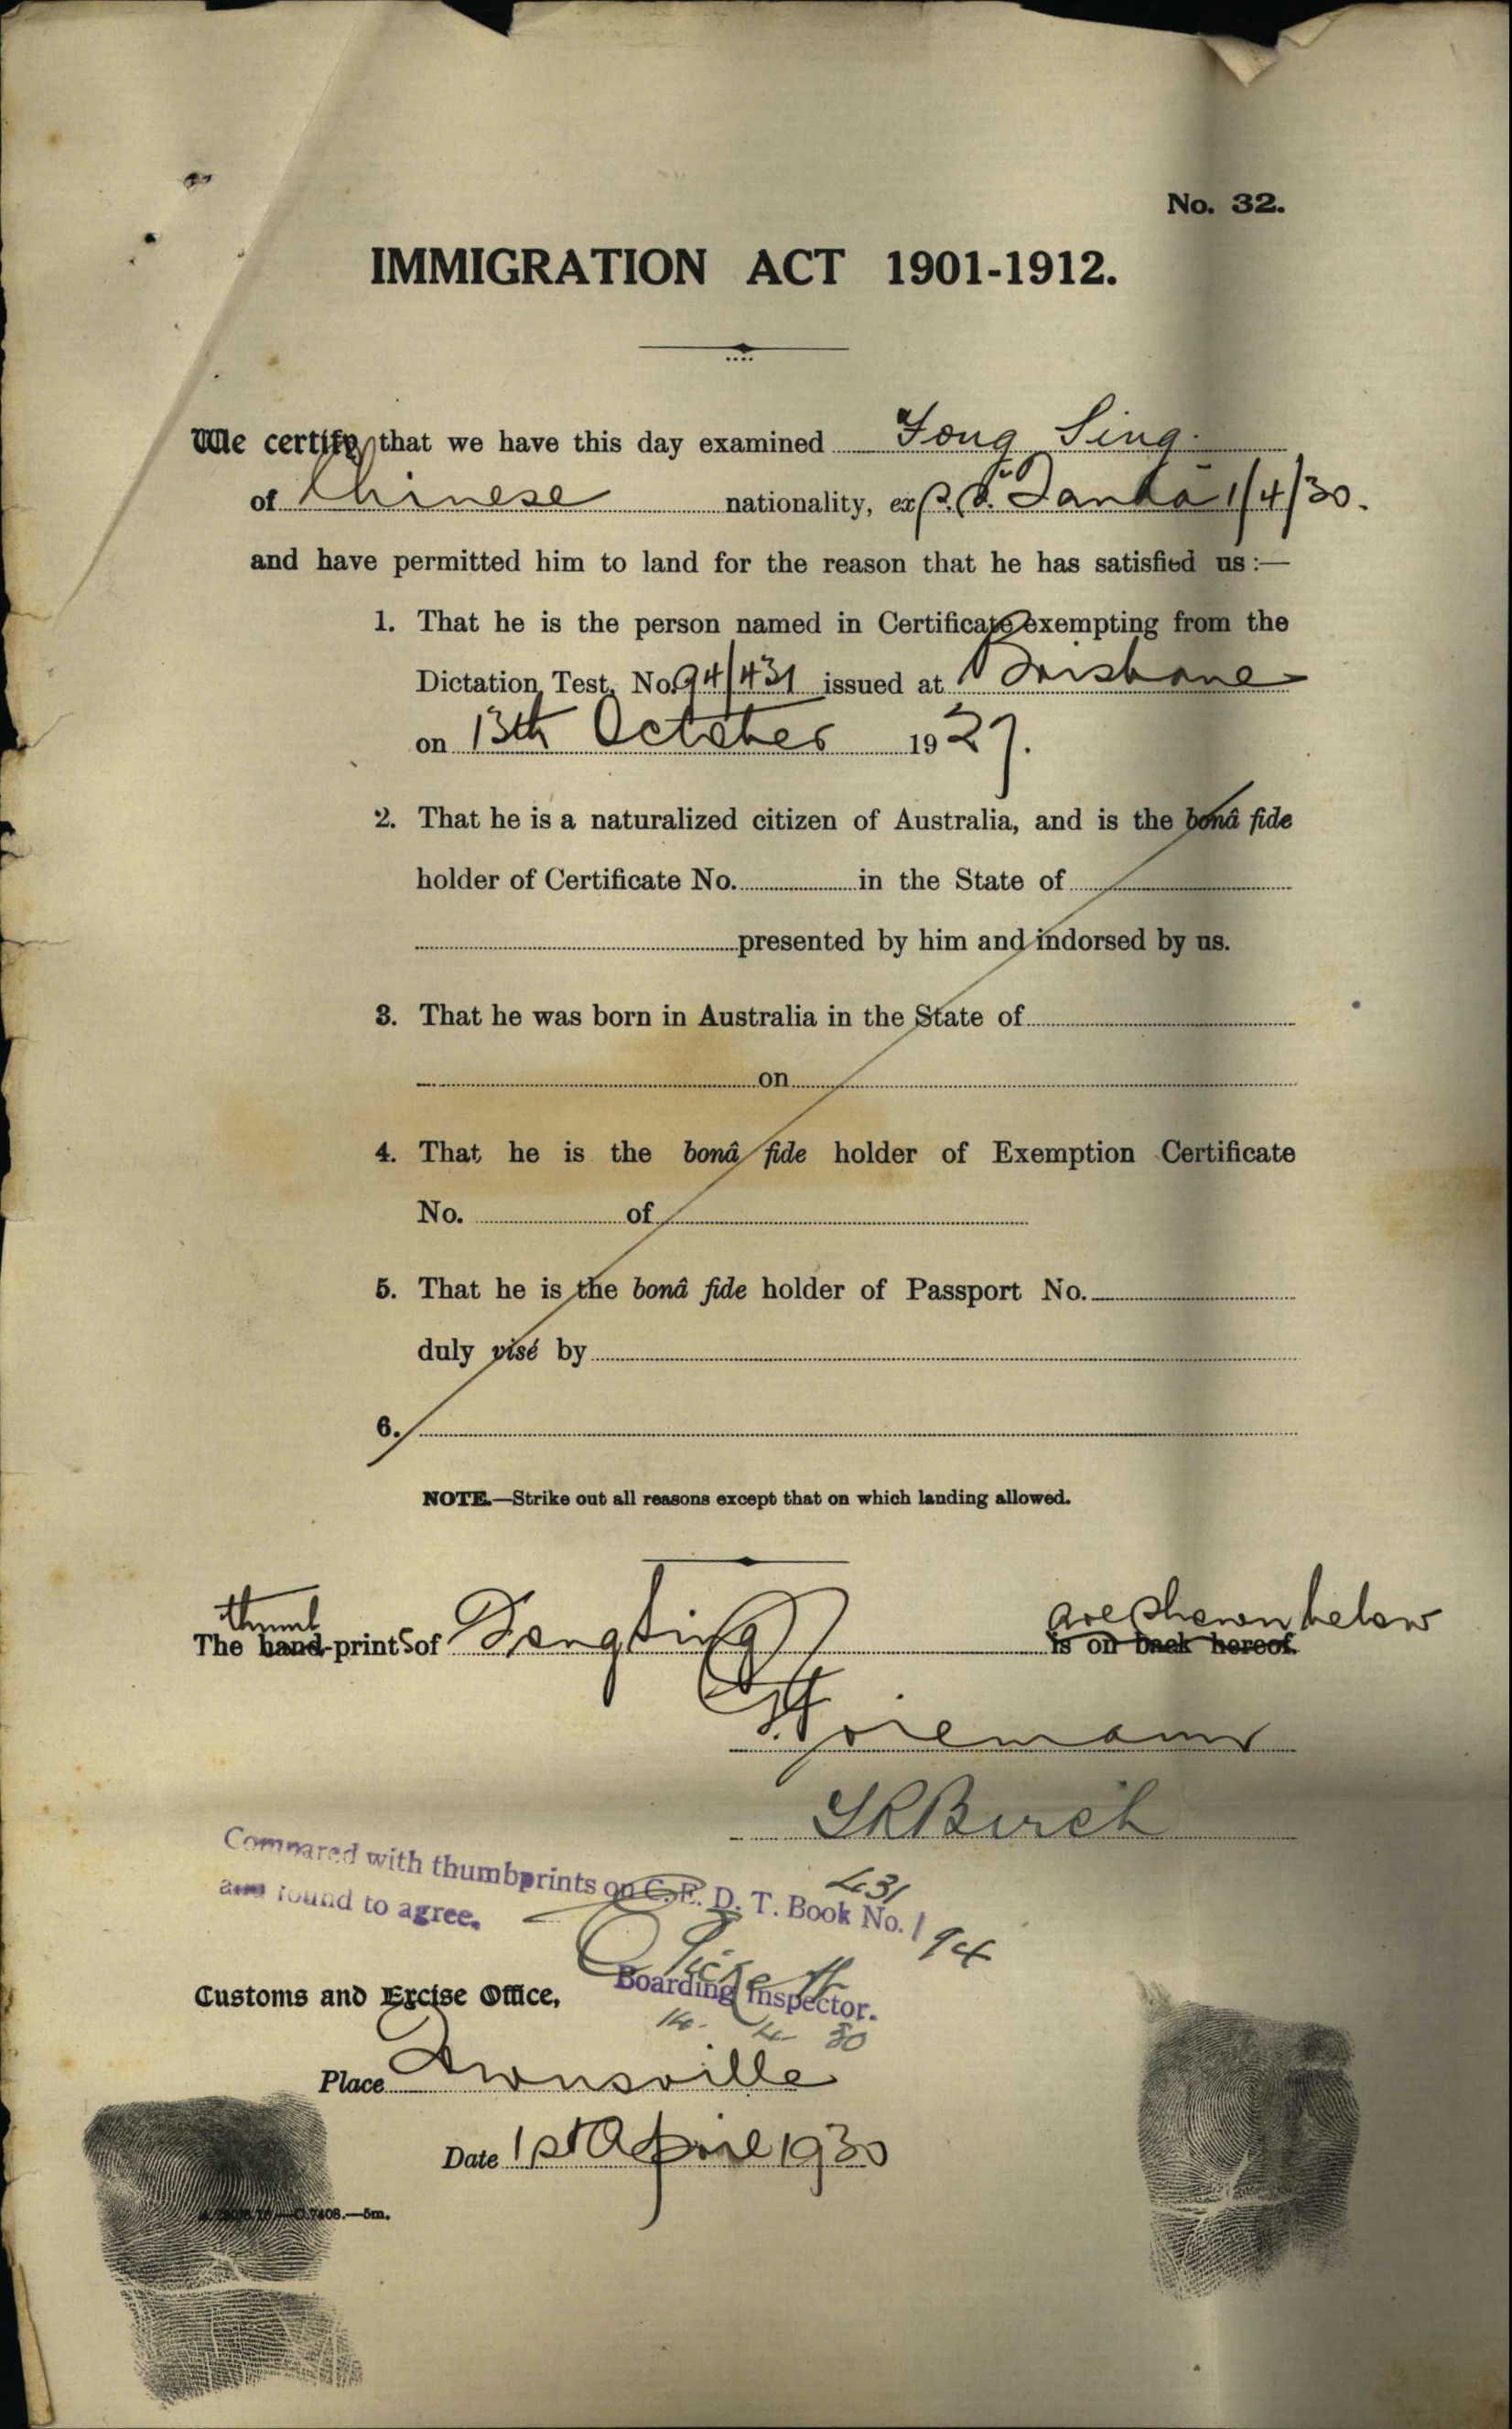 No. 32.
IMMIGRATION ACT 1901-1912.
We certify that we have this day examined Fong Sing.
of Chinese nationality, ex S.S. Tanda 1/4/30.
and have permitted him to land for the reason that he has satisfied us:—
1. That he is the person named in Certificate exempting from the
Dictation Test, No. 94/431 issued at Brisbane
on 13th October 1927.
2. That he is a naturalized citizen of Australia, and is the bonâ fide
holder of Certificate No. in the State of
presented by him and indorsed by us.
3. That he was born in Australia in the State of
on
4. That he is the bonâ fide holder of Exemption Certificate
No. of
5. That he is the bonâ fide holder of Passport No.
duly visé by
6.
NOTE.—Strike out all reasons except that on which landing allowed.
thumb are shewn below
The hand-prints of Fong Sing is on back hereof.
Foremann
Birch
Compared with thumbprints on C. E. D. T. Book No. 431/94
and found to agree.
Boarding Inspector.
14. 4. 30
Customs and Excise Office,
Place Townsville
Date 1st April 1930
C.7408.—5m.